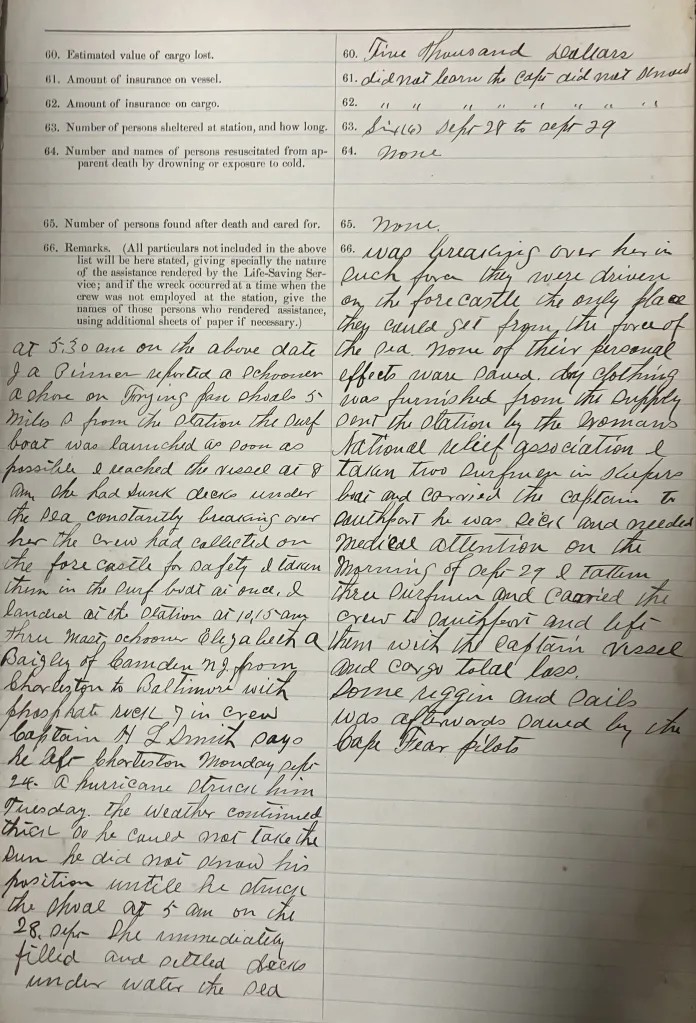 60. Estimated value of cargo lost.
60. Five thousand Dollars
61. Amount of insurance on vessel.
61. did not learn the Capt did not know
62. Amount of insurance on cargo.
62. " " " " " " " "
63. Number of persons sheltered at station, and how long.
63. Six (6) Sept 28 to Sept 29
64. Number and names of persons resuscitated from ap-
parent death by drowning or exposure to cold.
64. none
65. Number of persons found after death and cared for.
65. none.
66. Remarks. (All particulars not included in the above
list will be here stated, giving specially the nature
of the assistance rendered by the Life-Saving Ser-
vice; and if the wreck occurred at a time when the
crew was not employed at the station, give the
names of those persons who rendered assistance,
using additional sheets of paper if necessary.)
at 5.30 am on the above date
J a Pinner reported a schooner
a shore on Frying pan shoals 5
miles S from the station the surf
boat was launched as soon as
possible I reached the vessel at 8
am she had sunk decks under
the sea constantly breaking over
her the crew had collected on
the fore castle for safety I taken
them in the surf boat at once, I
landed at the station at 10,15 am
three mast schooner Elizabeth a
Baizley of Camden N.J. from
Charleston to Baltimore with
phosphate rock 7 in crew
Captain H L Smith says
he left Charleston Monday sept
24. a hurricane struck him
Tuesday. the weather continued
thick so he could not take the
sun he did not know his
position untile he struck
the shoal at 5 am on the
28. sept she immediately
filled and settled decks
under water the sea
66. was breaking over her in
such force they were driven
on the forecastle the only place
they could get from the force of
the sea. none of their personal
effects ware saved. dry clothing
was furnished from the supply
sent the station by the womans
National relief association I
taken two surfmen in keepers
boat and carried the captain to
Southport he was sick and needed
medical attention on the
morning of sept 29 I taken
three surfmen and carried the
crew to Southport and left
them with the captain vessel
and cargo total loss.
Some riggin and sails
was afterwards saved by the
Cape Fear pilots